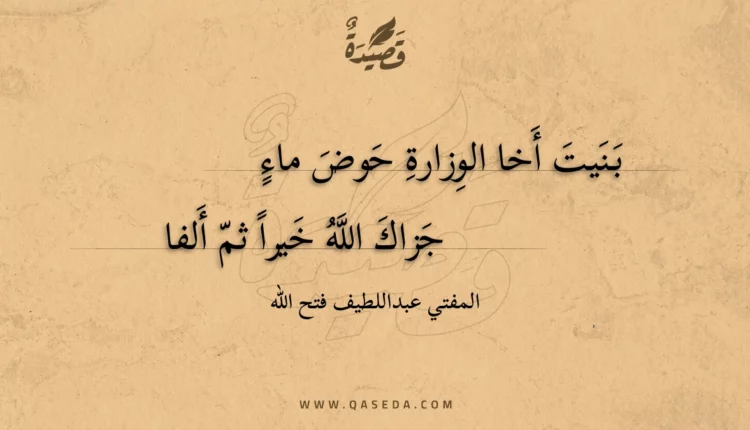 قَصِيدَةٌ
بَنَيتَ أَخا الوِزارةِ حَوضَ ماءٍ
جَزاكَ اللَّهُ خَيراً ثمّ أَلفا
المفتي عبداللطيف فتح الله
WWW.QASEDA.COM